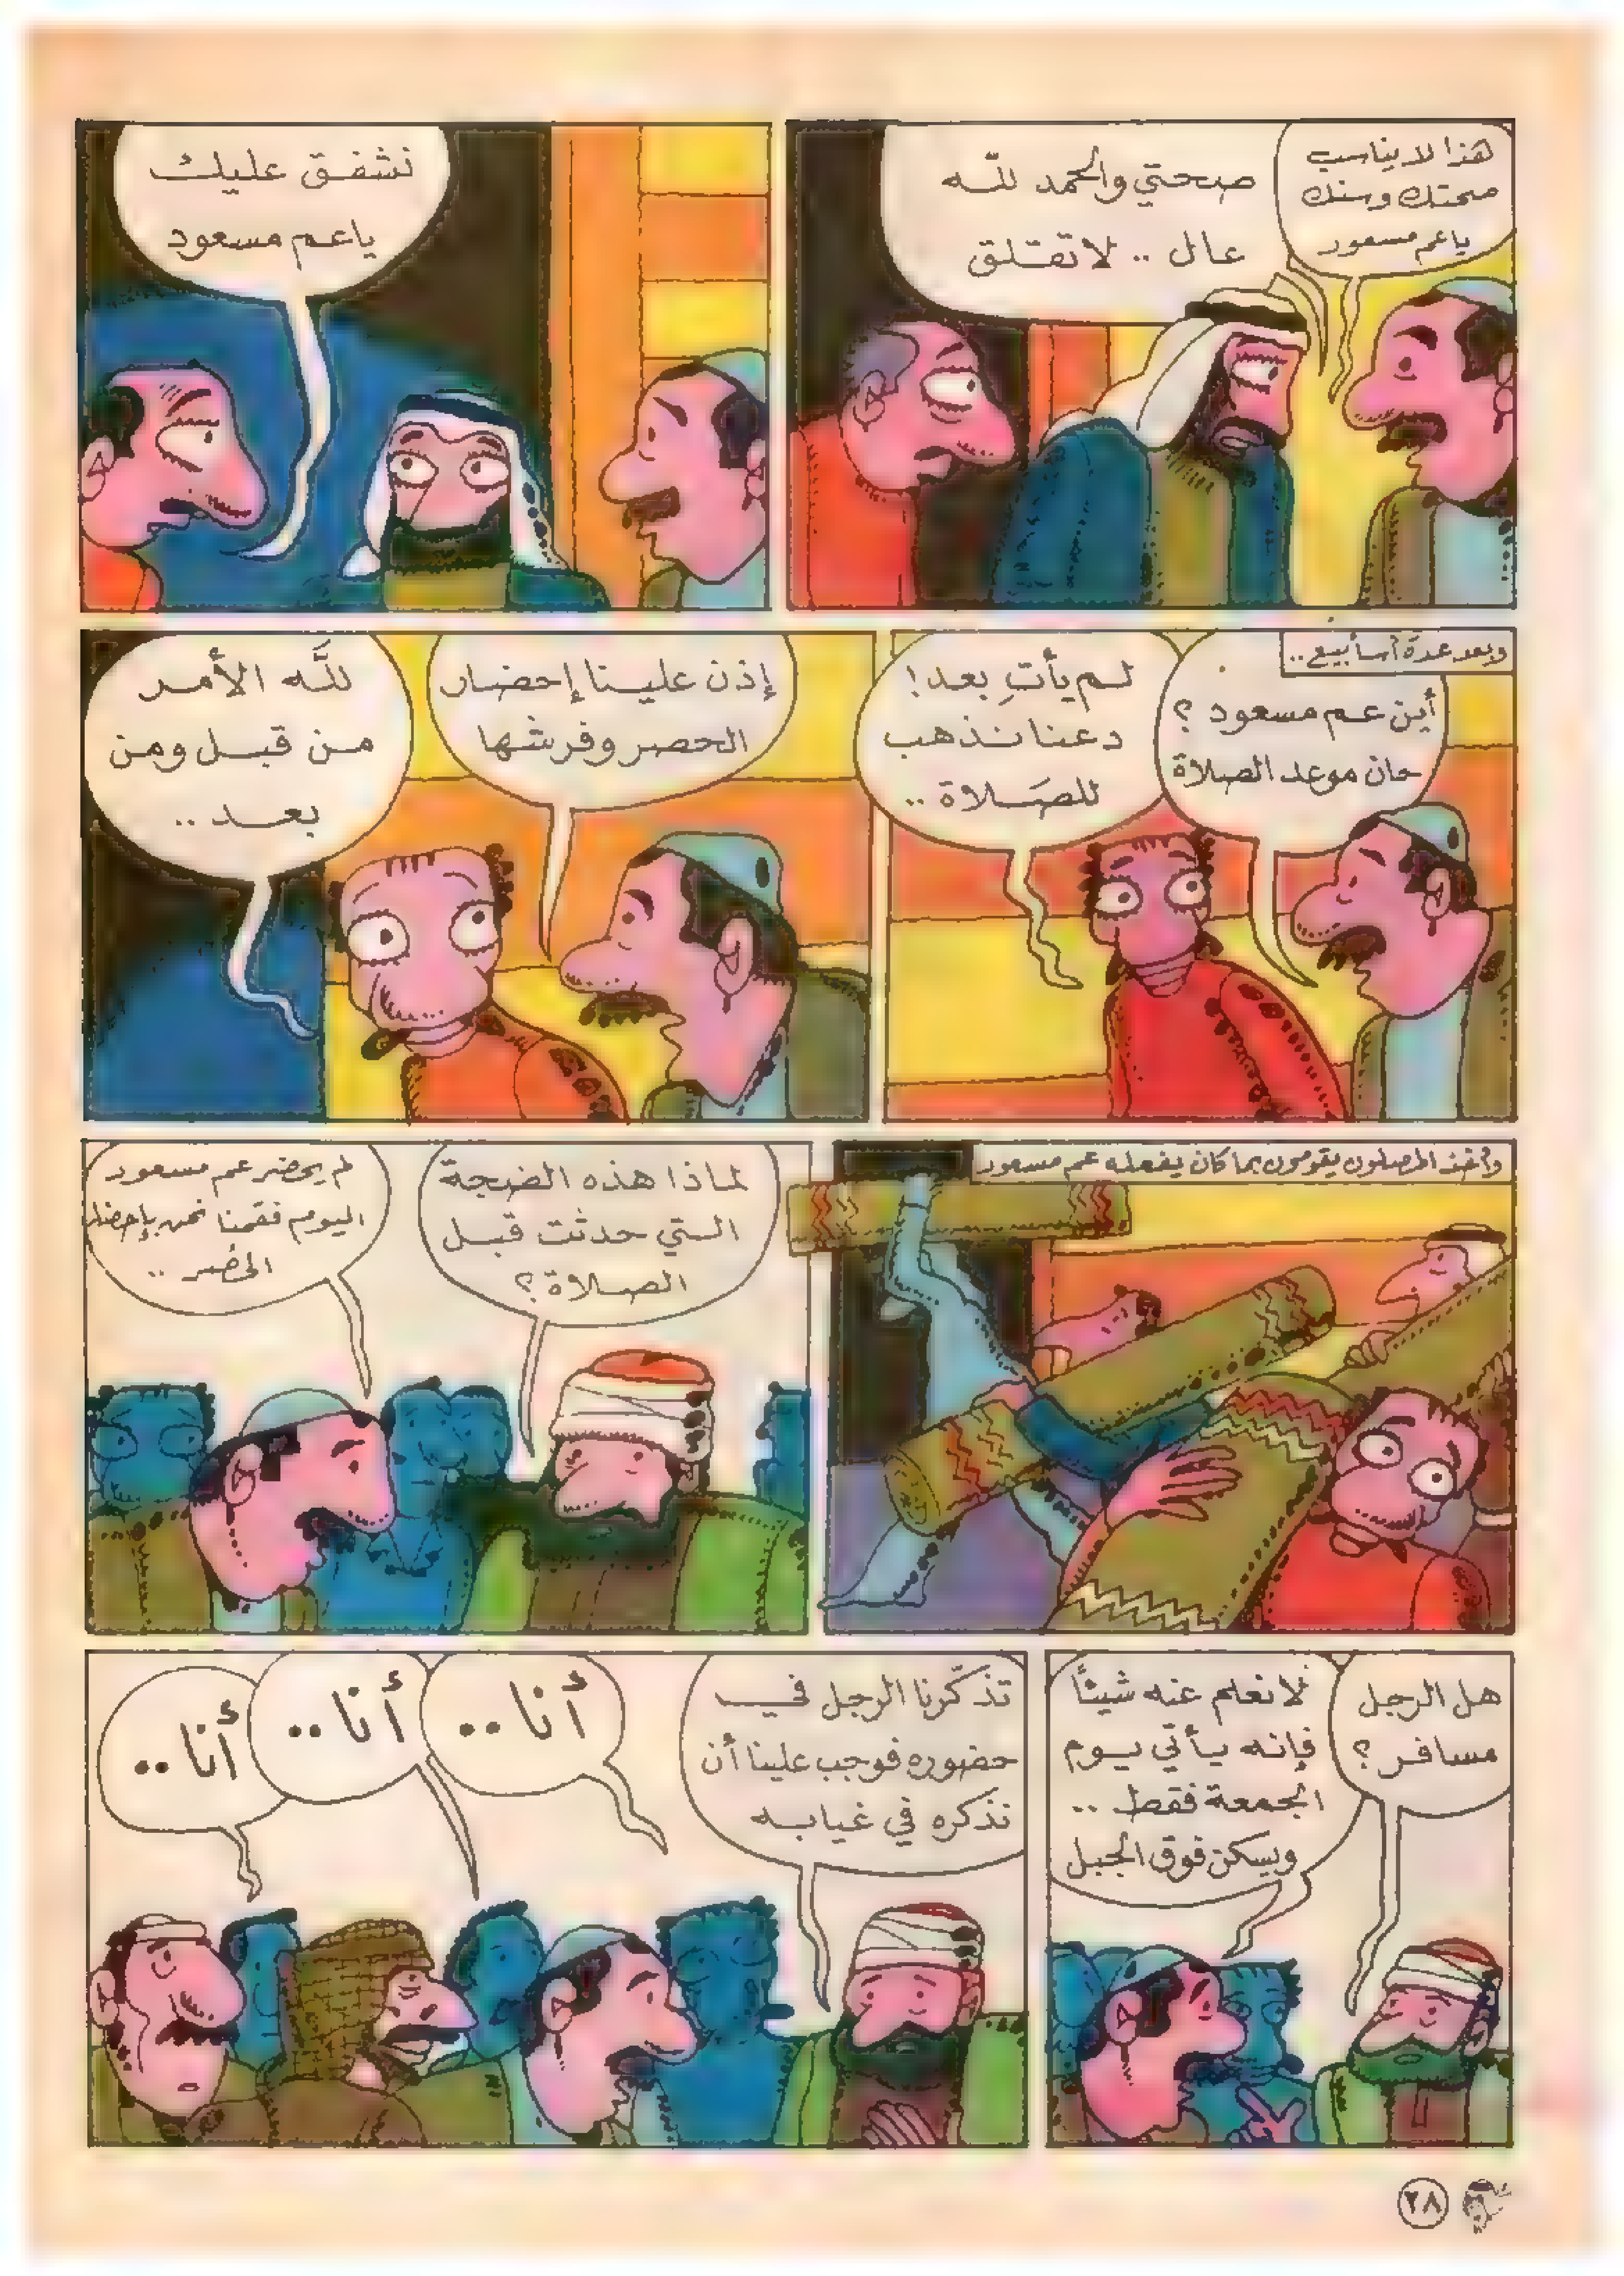 هذا لا يناسب
صحتك وسنك
ياعم مسعود
صحتي والحمد للّه
عال .. لا تقلق
نشفق عليك
ياعم مسعود
وبعد عدة أسابيع ..
أين عم مسعود ؟
حان موعد الصلاة
لم يأتِ بعد !
دعنا نذهب
للصَلاة ..
إذن علينا إحضار
الحصر وفرشها
للَّه الأمر
من قبل ومن
بعد ..
وأخذ المصلون يقومون بما كان يفعله عم مسعود
لماذا هذه الضجة
التي حدثت قبل
الصلاة ؟
لم يحضر عم مسعود
اليوم فقمنا نحن بإحضار
الحُصر ..
هل الرجل
مسافر ؟
لا نعلم عنه شيئاً
فإنه يأتي يوم
الجمعة فقط ..
ويسكن فوق الجبل
تذكّرنا الرجل في
حضوره فوجب علينا أن
نذكره في غيابه
أنا ..
أنا ..
أنا ..
٢٨